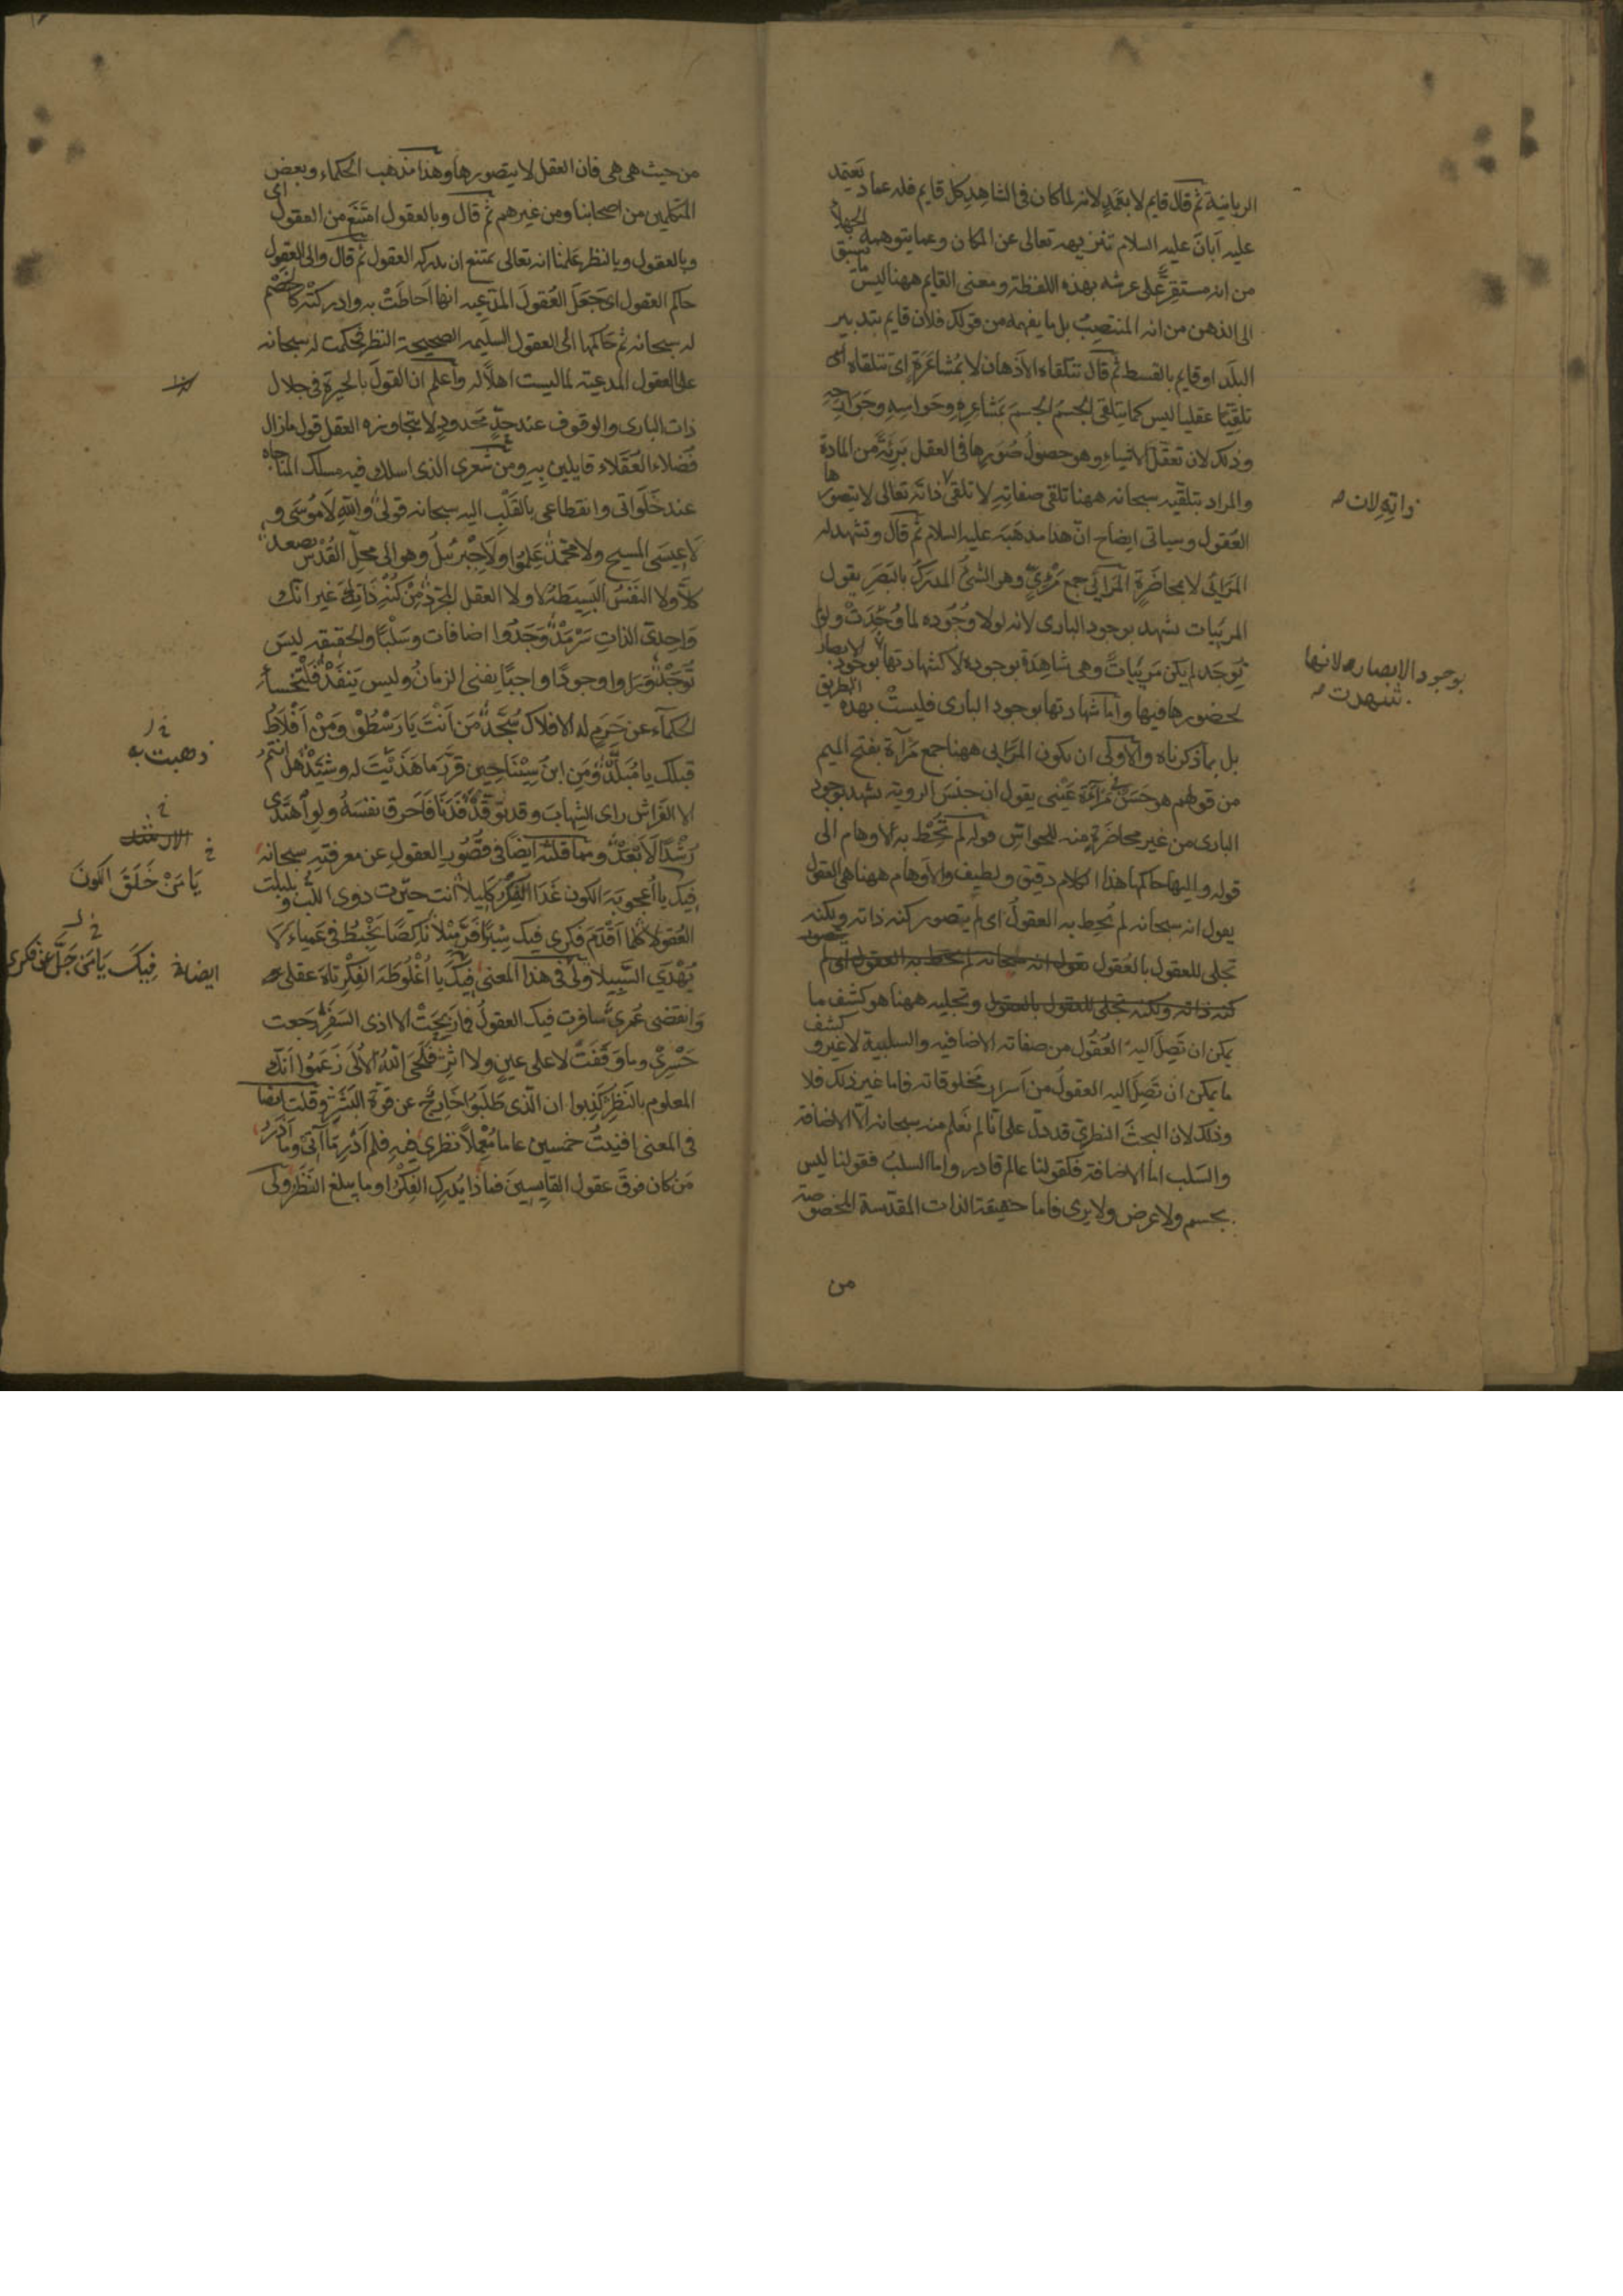 الرياضية ثم قال قايم لا بعمد لانه لما كان فى الشاهد كل قايم فله عماد يعتمد
عليه ابان عليه السلام تنزيهه تعالى عن المكان وعما يتوهمه الجهلا
من انه مستقر على عرشه بهذه اللفظة ومعنى القايم ههنا ليس ما يسبق
الى الذهن من انه المنتصب بل ما يفهمه من قولك فلان قايم بتدبير
البلد او قايم بالقسط ثم قال تتلقاه الاذهان لا بمشاعرة اى تتلقاه
تلقيا عقليا ليس كما يتلقى الجسم الجسم بمشاعره وحواسه وجوارحه
وذلك لان تعقل الاشياء وهو حصول صورها فى العقل بريئة من المادة
والمراد بتلقيه سبحانه ههنا تلقى صفاته لا تلقى ذاته تعالى لا يتصورها
ذاته لان
العقول وسياتى ايضاح ان هذا مذهبه عليه السلام ثم قال وتشهد له
المرائى لا بمحاضرة المرائى جمع مرئى وهو الشئ المدرك بالبصر يقول
المرئيات تشهد بوجود البارى لانه لولا وجوده لما وجدت ولو لم
توجد لم يكن مرئيات وهى شاهدة بوجوده لا كشهادتها بوجود الابصار
بوجود الابصار لانها
شهدت
لحضورها فيها واما شهادتها بوجود البارى فليست بهذه الطريق
بل بما ذكرناه والاولى ان يكون المرائى ههنا جمع مرآة بفتح الميم
من قولهم هو حسن فى مرآة عينى يقول ان جنس الروية يشهد بوجود
البارى من غير محاضرة منه للحواس قوله لم تحط به الاوهام الى
قوله واليها حاكمها هذا الكلام دقيق ولطيف والاوهام ههنا هى العقول
يقول انه سبحانه لم تحط به العقول اى لم يتصور كنه ذاته ولكنه
تجلى للعقول بالعقول يقول انه سبحانه لم تحط به العقول اى لم يتصور
كنه ذاته ولكنه تجلى للعقول بالعقول وتجليه ههنا هو كشف ما
يمكن ان تصل اليه العقول من صفاته الاضافيه والسلبية لا غير وكشف
ما يمكن ان تصل اليه العقول من اسرار مخلوقاته فاما غير ذلك فلا
وذلك لان البحث النظرى قد دل على انا لم نعلم منه سبحانه الا الاضافة
والسلب اما الاضافة فكقولنا عالم قادر واما السلب فقولنا ليس
بجسم ولا عرض ولا يرى فاما حقيقة الذات المقدسة المخصوصة
من
من حيث هى هى فان العقل لا يتصورها وهذا مذهب الحكماء وبعض
المتكلمين من اصحابنا ومن غيرهم ثم قال وبالعقول امتنع من العقول اى
وبالعقول وبالنظر علمنا انه تعالى يمتنع ان تدركه العقول ثم قال والى العقول
حاكم العقول اى جعل العقول المدعيه انها احاطت به وادركته كالخصم
له سبحانه ثم حاكمها الى العقول السليمه الصحيحة النظر فحكمت له سبحانه
على العقول المدعية لما ليست اهلا له واعلم ان القول بالحيرة فى جلال
ذات البارى والوقوف عند حد محدود لا يتجاوزه العقل قول ما زال
فضلاء العقلاء قايلين به ومن شعرى الذى اسلك فيه مسلك المناجاه
عند خلواتى وانقطاعى بالقلب اليه سبحانه قولى والله لا موسى و
لا عيسى المسيح ولا محمد علموا ولا جبريل وهو الى محل القدس يصعد
كلا ولا النفس البسيطة لا ولا العقل المجرد من كنه ذاتك غير انك
واحدى الذات سرمد وجدوا اضافات وسلبا والحقيقه ليس
توجد وراوا وجودا واجبا يفنى الزمان وليس ينفد فلتخسأ
الحكماء عن حرم له الافلاك سجد من انت يا رسطو ومن افلاط
قبلك يا مبلد ومن ابن سينا حين قرر ما هذيت له وشيد هل انتم
ذهبت به
الا الفراش راى الشهاب وقد توقد فدنا فاحرق نفسه ولو اهتدى
رشدا لابعد ومما قلته ايضا فى قصور العقول عن معرفته سبحانه
فيك يا اعجوبة الكون غدا الفكر كليلا انت حيرت ذوى اللب وبلبلت
يا من خلق الكون
العقولا كلما اقدم فكرى فيك شبرا فر ميلا ناكصا يخبط فى عمياء لا
يهدى السبيلا ولى فى هذا المعنى فيك يا اغلوطة الفكر تاه عقلى
ايضا فيك يا من جل عن فكرى
وانقضى عمرى سافرت فيك العقول فما ربحت الا اذى السفر رجعت
حسرى وما وقفت لا على عين ولا اثر فلحى الله الالى زعموا انك
المعلوم بالنظر كذبوا ان الذى طلبوا خارج عن قوة البشر وقلت ايضا
فى المعنى افنيت خمسين عاما معملا نظرى فيه فلم ادر ما آتى وما اذر
من كان فوق عقول القايسين فماذا يدرك الفكر او ما يبلغ النظر ولى